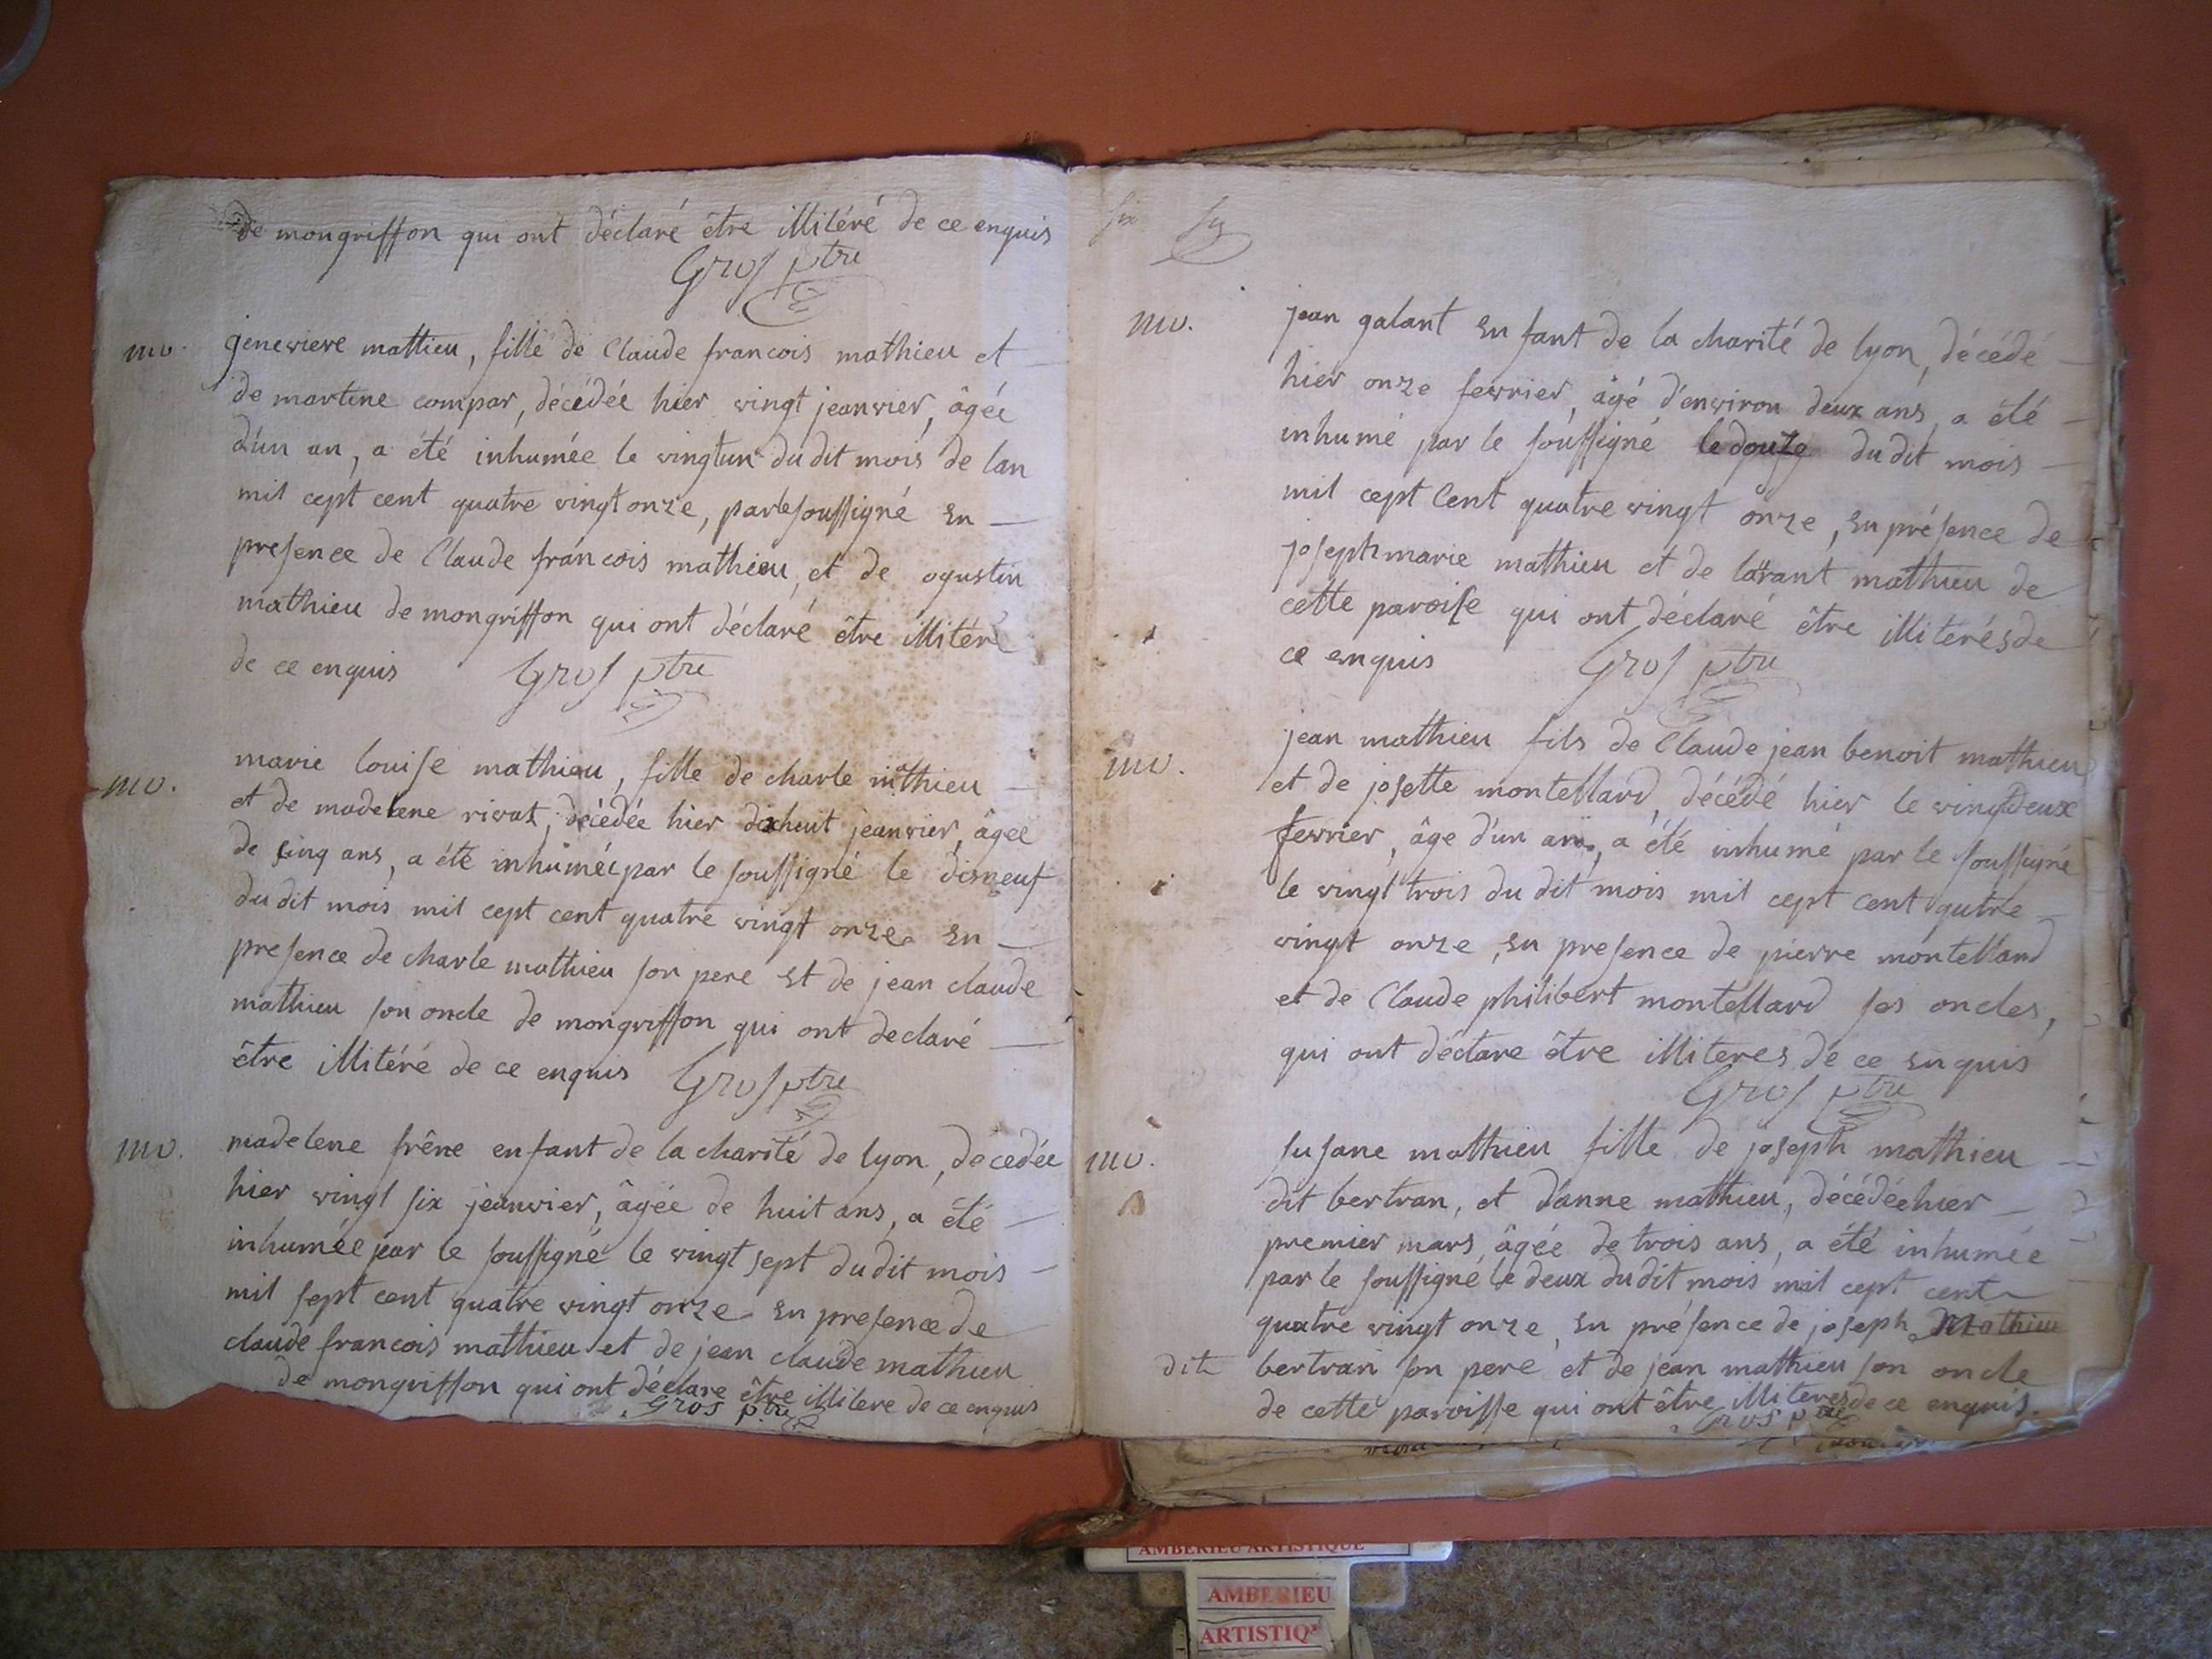 de mongriffon qui ont déclaré être illitéré de ce enquis
Gros ptre
mo.
genevieve mattieu, fille de Claude francois mathieu et
de martine compar, décédée hier vingt jeanvier, âgée
d'un an, a été inhumée le vingtun du dit mois de lan
mil cept cent quatre vingt onze, par le soussigné en
presence de Claude francois mathieu, et de ogustin
mathieu de mongriffon qui ont déclaré être illitéré
de ce enquis Gros ptre
mo.
marie louise mathieu, fille de charle mathieu
et de madelene rivat, décédée hier dixhuit jeanvier, âgée
de cinq ans, a été inhumée par le soussigné le disneuf
du dit mois mil cept cent quatre vingt onze en
presence de charle mathieu son pere et de jean claude
mathieu son oncle de mongriffon qui ont declaré
être illitéré de ce enquis Gros ptre
mo.
madelene frêne enfant de la charité de lyon, décédée
hier vingt six jeanvier, âgée de huit ans, a été
inhumée par le soussigné le vingt sept du dit mois
mil sept cent quatre vingt onze en presence de
claude francois mathieu et de jean claude mathieu
de mongriffon qui ont déclare être illitere de ce enquis
Gros ptre
six
mo.
jean galant enfant de la charité de lyon, décédé
hier onze fevrier, âgé d'environ deux ans, a été
inhumé par le soussigné le douze du dit mois
mil cept Cent quatre vingt onze, en présence de
joseph marie mathieu et de lorant mathieu de
cette paroise qui ont déclaré être illiterés de
ce enquis Gros ptre
mo.
jean mathieu fils de Claude jean benoit mathieu
et de josette montellard, décédé hier le vingtdeux
fevrier, âge d'un an, a été inhumé par le soussigné
le vingt trois du dit mois mil cept cent qutre
vingt onze, en presence de pierre montellard
et de Claude philibert montellard ses oncles,
qui ont déclare être illiteres de ce enquis
Gros ptre
mo.
susane mathieu fille de joseph mathieu
dit bertran, et d'anne mathieu, décédée hier
premier mars, âgée de trois ans, a été inhumée
par le soussigné le deux du dit mois mil cept cent
quatre vingt onze, en présence de joseph Mathieu
dit bertran son pere et de jean mathieu son oncle
de cette paroisse qui ont être illiteres de ce enquis.
Gros ptre
AMBERIEU ARTISTIQUE
AMBERIEU
ARTISTIQ